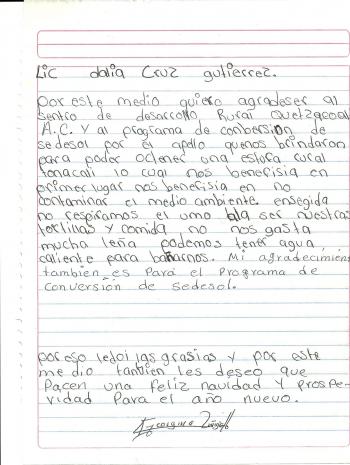 Lic dalia Cruz gutierrez.
por este medio quiero agradeser al
sentro de desarrollo Rural quetzacoal
A.C. Y al programa de conbersion de
sedesol por el apollo quenos brindaron
para poder octener una estufa rural
tonacali lo cual nos benefisia en
primer lugar nos benefisia en no
contaminar el medio ambiente ensegida
no respiramos el umo ala ser nuestras
tortillas y comida no nos gasta
mucha leña podemos tener agua
caliente para bañarnos. Mi agradecimien
tambien es Para el Programa de
conversión de sedesol.
por eso ledoi las grasias y por este
medio tanbien les deseo que
Pacen una feliz navidad Y prospe-
ridad Para el año nuevo.